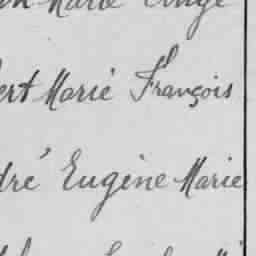 Marie Ange
ert Marie François
dré Eugène Marie